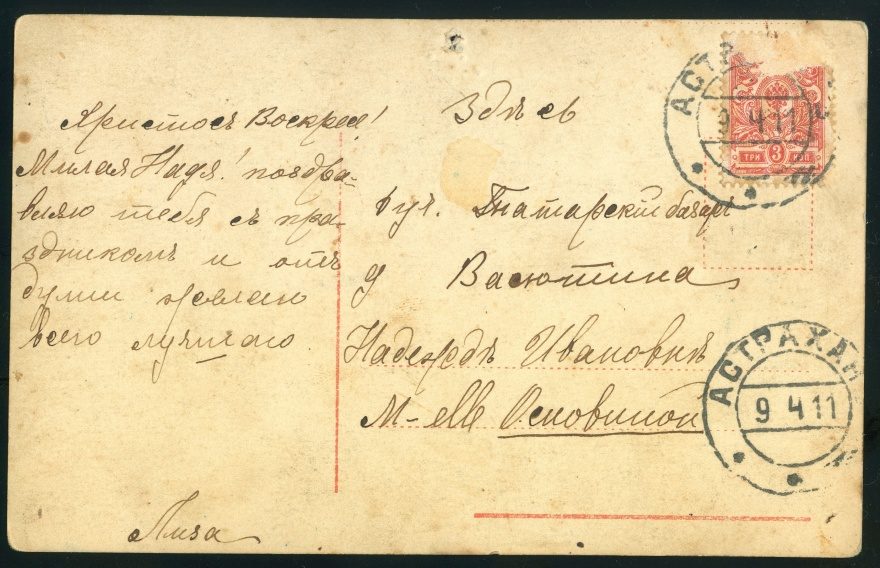 Христосъ Воскресе!
Милая Надя! поздра-
вляю тебя съ пра-
здникомъ и отъ
души желаю
всего лучшаго
Лиза
Здѣсь
уч. Татарскій базаръ
д Васютина
Надеждѣ Ивановнѣ
М-elle Осковиной
АСТРА
9 4 11
ТРИ 3 КОП
АСТРАХАН
9 4 11